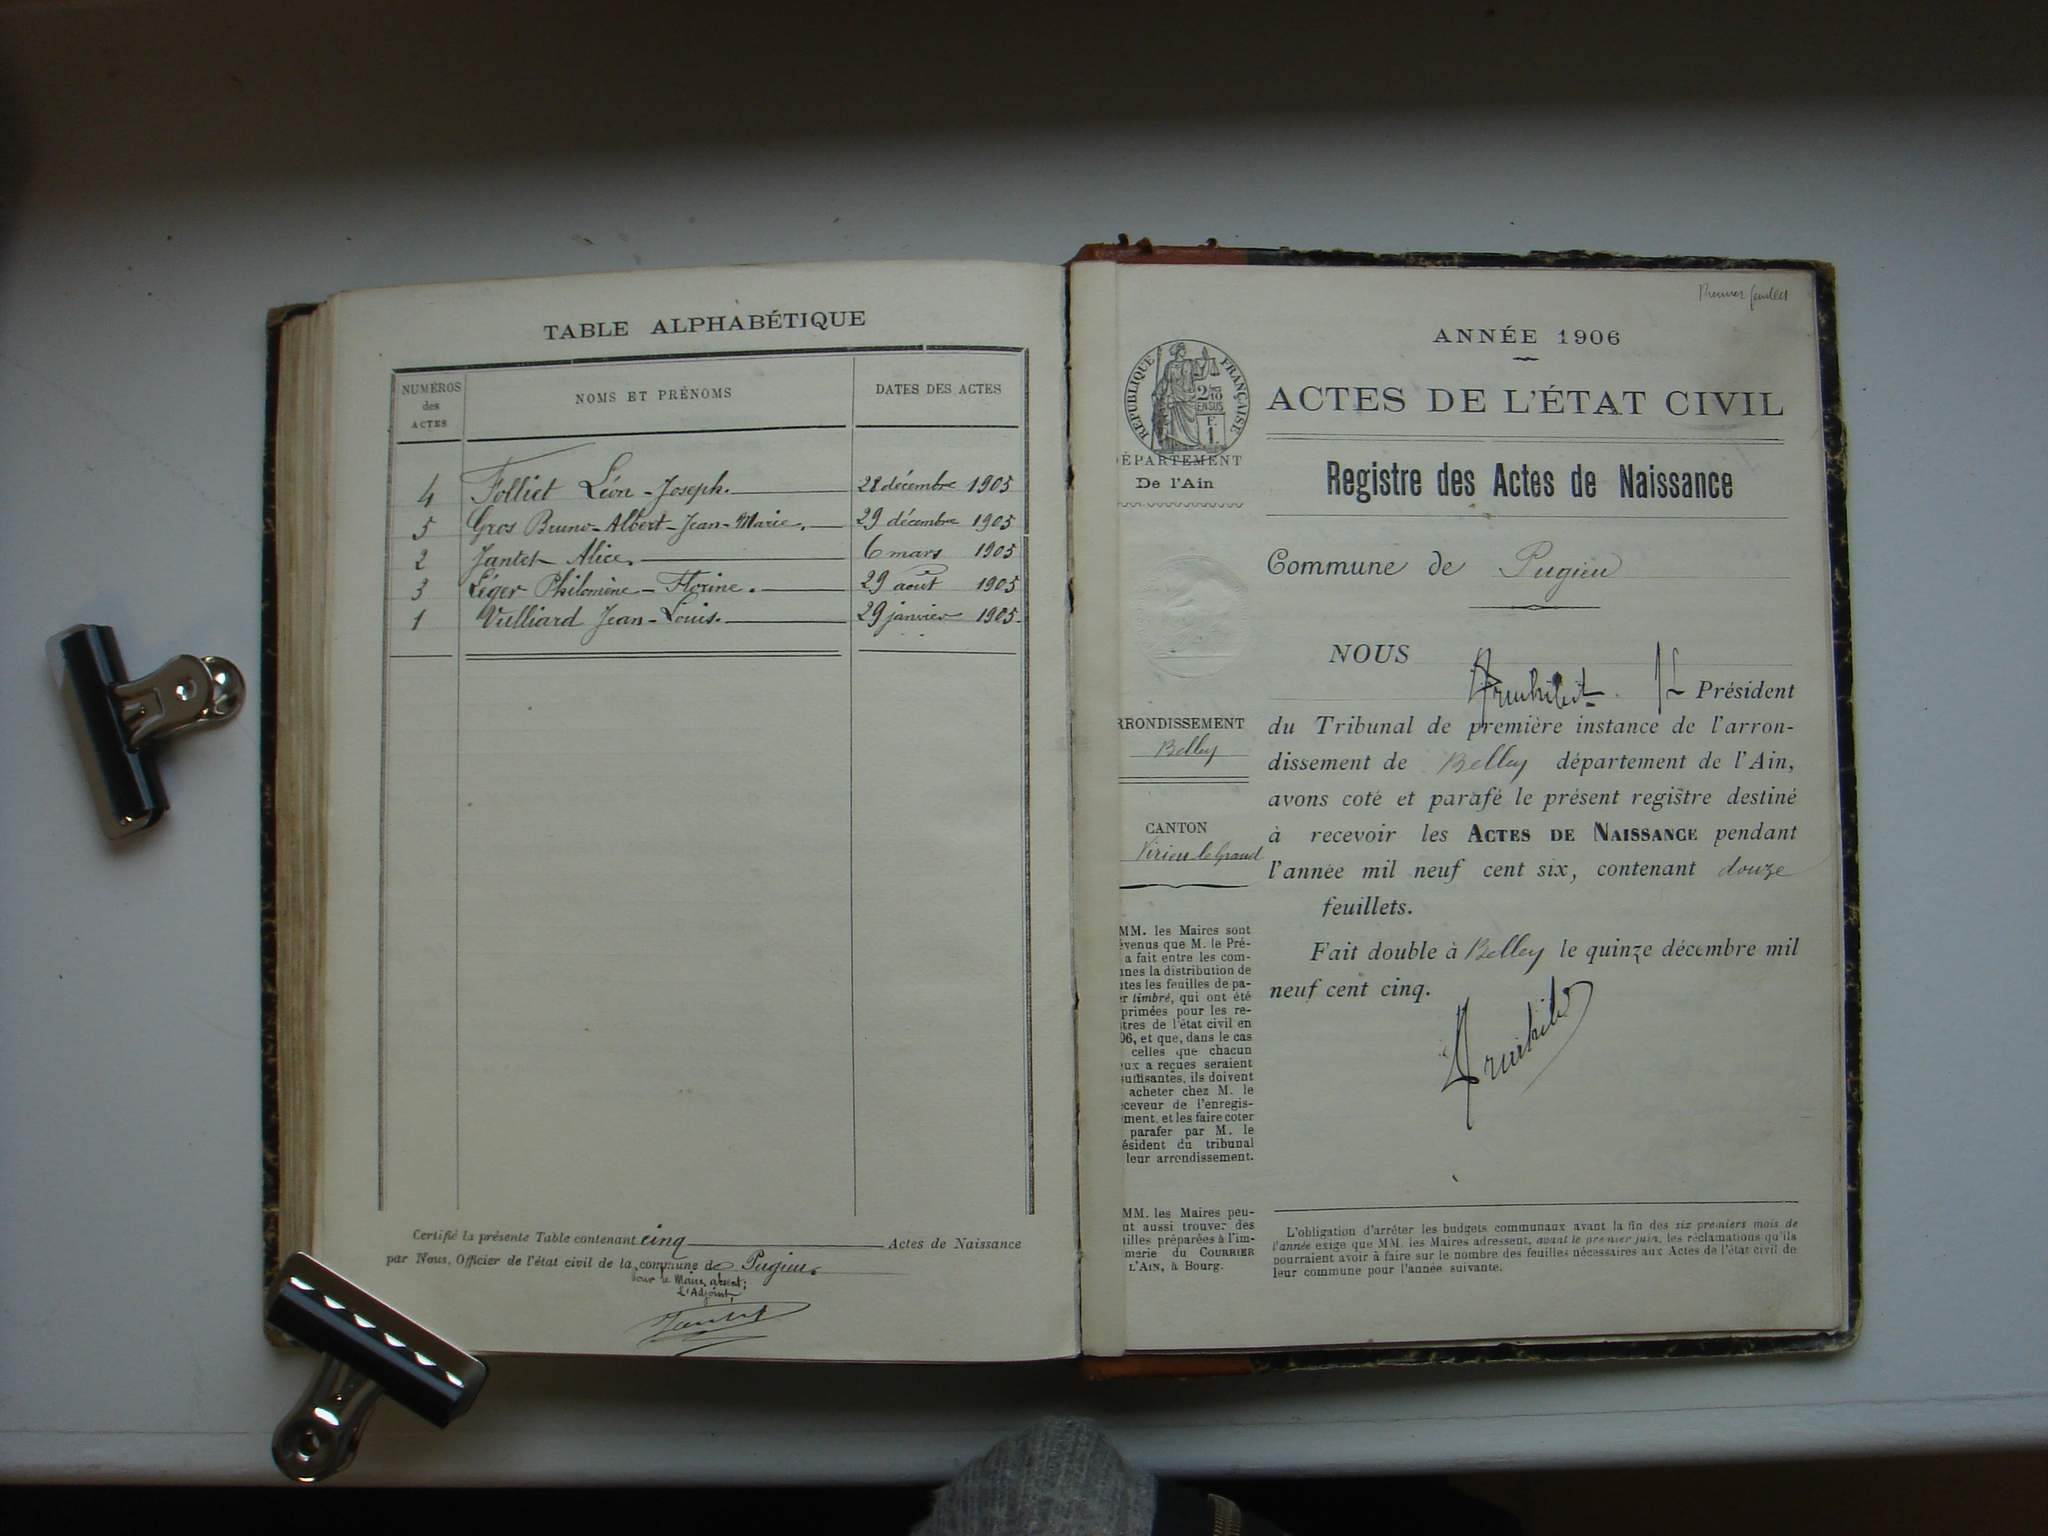 TABLE ALPHABÉTIQUE
NUMÉROS
des
ACTES
NOMS ET PRÉNOMS
DATES DES ACTES
4 Folliet Léon-Joseph. 28 décembre 1905
5 Gros Bruno-Albert-Jean-Marie. 29 décembre 1905
2 Jantet Alice. 6 mars 1905
3 Léger Philomène-Florine. 29 août 1905
1 Vulliard Jean-Louis. 29 janvier 1905
Certifié la présente Table contenant cinq Actes de Naissance
par Nous, Officier de l'état civil de la commune de Pugieu.
Pour le Maire, absent;
L'Adjoint,
Jantet
Premier feuillet
ANNÉE 1906
ACTES DE L'ÉTAT CIVIL
Registre des Actes de Naissance
Commune de Pugieu
NOUS
Président
du Tribunal de première instance de l'arron-
dissement de Belley département de l'Ain,
avons coté et parafé le présent registre destiné
à recevoir les ACTES DE NAISSANCE pendant
l'année mil neuf cent six, contenant douze
feuillets.
Fait double à Belley le quinze décembre mil
neuf cent cinq.
L'obligation d'arrêter les budgets communaux avant la fin des six premiers mois de
l'année exige que MM. les Maires adressent, avant le premier juin, les réclamations qu'ils
pourraient avoir à faire sur le nombre des feuilles nécessaires aux Actes de l'état civil de
leur commune pour l'année suivante.
RÉPUBLIQUE FRANÇAISE
2/10
EN SUS
F.
1.
ÉPARTEMENT
De l'Ain
RRONDISSEMENT
Belley
CANTON
Virieu-le-Grand
MM. les Maires sont
évenus que M. le Pré-
a fait entre les com-
unes la distribution de
utes les feuilles de pa-
er timbré, qui ont été
primées pour les re-
tres de l'état civil en
06, et que, dans le cas
celles que chacun
eux a reçues seraient
suffisantes, ils doivent
acheter chez M. le
eceveur de l'enregis-
ment, et les faire coter
parafer par M. le
ésident du tribunal
leur arrondissement.
MM. les Maires peu-
nt aussi trouver des
uilles préparées à l'im-
merie du COURRIER
L'AIN, à Bourg.